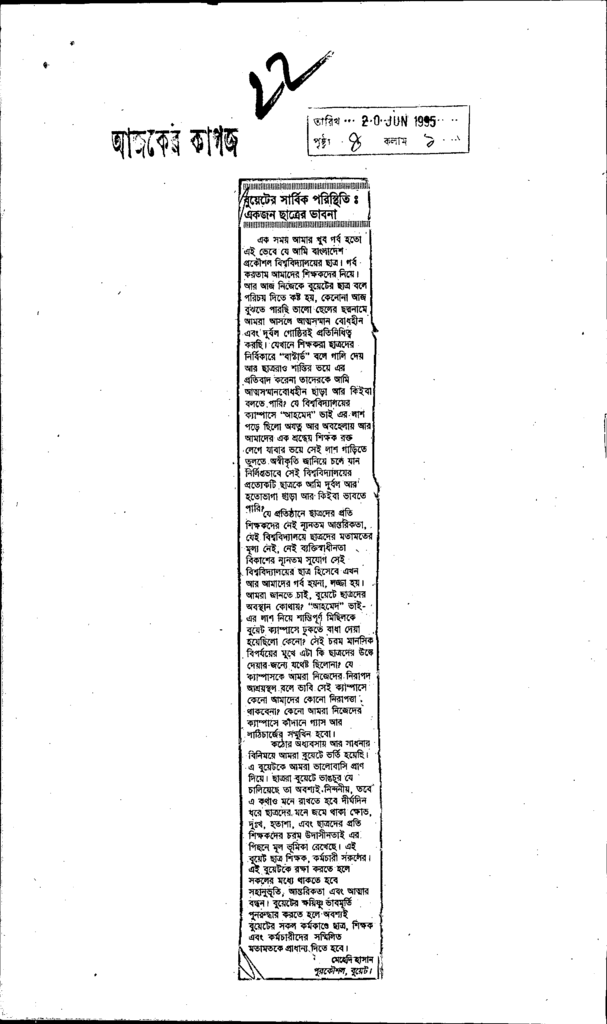 ২২
আজকের কাগজ
তারিখ ... 20 JUN 1995
পৃষ্ঠা ৪ কলাম ১
বুয়েটের সার্বিক পরিস্থিতি ঃ
একজন ছাত্রের ভাবনা
এক সময় আমার খুব গর্ব হতো
এই ভেবে যে আমি বাংলাদেশ
প্রকৌশল বিশ্ববিদ্যালয়ের ছাত্র। গর্ব
করতাম আমাদের শিক্ষকদের নিয়ে।
আর আজ নিজেকে বুয়েটের ছাত্র বলে
পরিচয় দিতে কষ্ট হয়, কেনোনা আজ
বুঝতে পারছি ভালো ছেলের ছদ্মনামে
আমরা আসলে আত্মসম্মান বোধহীন
এবং দুর্বল গোষ্ঠিরই প্রতিনিধিত্ব
করছি। যেখানে শিক্ষকরা ছাত্রদের
নির্বিকারে "বাস্টার্ড" বলে গালি দেয়
আর ছাত্ররাও শাস্তির ভয়ে এর
প্রতিবাদ করেনা তাদেরকে আমি
আত্মসম্মানবোধহীন ছাড়া আর কিইবা
বলতে পারি? যে বিশ্ববিদ্যালয়ের
ক্যাম্পাসে "আহমেদ" ভাই এর লাশ
পড়ে ছিলো অযত্ন আর অবহেলায় আর
আমাদের এক শ্রদ্ধেয় শিক্ষক রক্ত
লেগে যাবার ভয়ে সেই লাশ গাড়িতে
তুলতে অস্বীকৃতি জানিয়ে চলে যান
নির্লিপ্তভাবে সেই বিশ্ববিদ্যালয়ের
প্রত্যেকটি ছাত্রকে আমি দুর্বল আর
হতোভাগা ছাড়া আর কিইবা ভাবতে
পারি?
যে প্রতিষ্ঠানে ছাত্রদের প্রতি
শিক্ষকদের নেই ন্যূনতম আন্তরিকতা,
যেই বিশ্ববিদ্যালয়ে ছাত্রদের মতামতের
মূল্য নেই, নেই ব্যক্তিস্বাধীনতা
বিকাশের ন্যূনতম সুযোগ সেই
বিশ্ববিদ্যালয়ের ছাত্র হিসেবে এখন
আর আমাদের গর্ব হয়না, লজ্জা হয়।
আমরা জানতে চাই, বুয়েটে ছাত্রদের
অবস্থান কোথায়? "আহমেদ" ভাই-
এর লাশ নিয়ে শান্তিপূর্ণ মিছিলকে
বুয়েট ক্যাম্পাসে ঢুকতে বাধা দেয়া
হয়েছিলো কেনো? সেই চরম মানসিক
বিপর্যয়ের মুখে এটা কি ছাত্রদের উস্কে
দেয়ার জন্যে যথেষ্ট ছিলোনা? যে
ক্যাম্পাসকে আমরা নিজেদের নিরাপদ
আশ্রয়স্থল বলে ভাবি সেই ক্যাম্পাসে
কেনো আমাদের কোনো নিরাপত্তা
থাকবেনা? কেনো আমরা নিজেদের
ক্যাম্পাসে কাঁদানে গ্যাস আর
লাঠিচার্জের সম্মুখিন হবো।
কঠোর অধ্যবসায় আর সাধনার
বিনিময়ে আমরা বুয়েটে ভর্তি হয়েছি।
এ বুয়েটকে আমরা ভালোবাসি প্রাণ
দিয়ে। ছাত্ররা বুয়েটে ভাঙচুর যে
চালিয়েছে তা অবশ্যই নিন্দনীয়, তবে
এ কথাও মনে রাখতে হবে দীর্ঘদিন
ধরে ছাত্রদের মনে জমে থাকা ক্ষোভ,
দুঃখ, হতাশা, এবং ছাত্রদের প্রতি
শিক্ষকদের চরম উদাসীনতাই এর
পিছনে মূল ভূমিকা রেখেছে। এই
বুয়েট ছাত্র শিক্ষক, কর্মচারী সকলের।
এই বুয়েটকে রক্ষা করতে হলে
সকলের মধ্যে থাকতে হবে
সহানুভূতি, আন্তরিকতা এবং আত্মার
বন্ধন। বুয়েটের ক্ষয়িষ্ণু ভাবমূর্তি
পুনরুদ্ধার করতে হলে অবশ্যই
বুয়েটের সকল কর্মকাণ্ডে ছাত্র, শিক্ষক
এবং কর্মচারীদের সম্মিলিত
মতামতকে প্রাধান্য দিতে হবে।
মেহেদি হাসান
পুরকৌশল, বুয়েট।